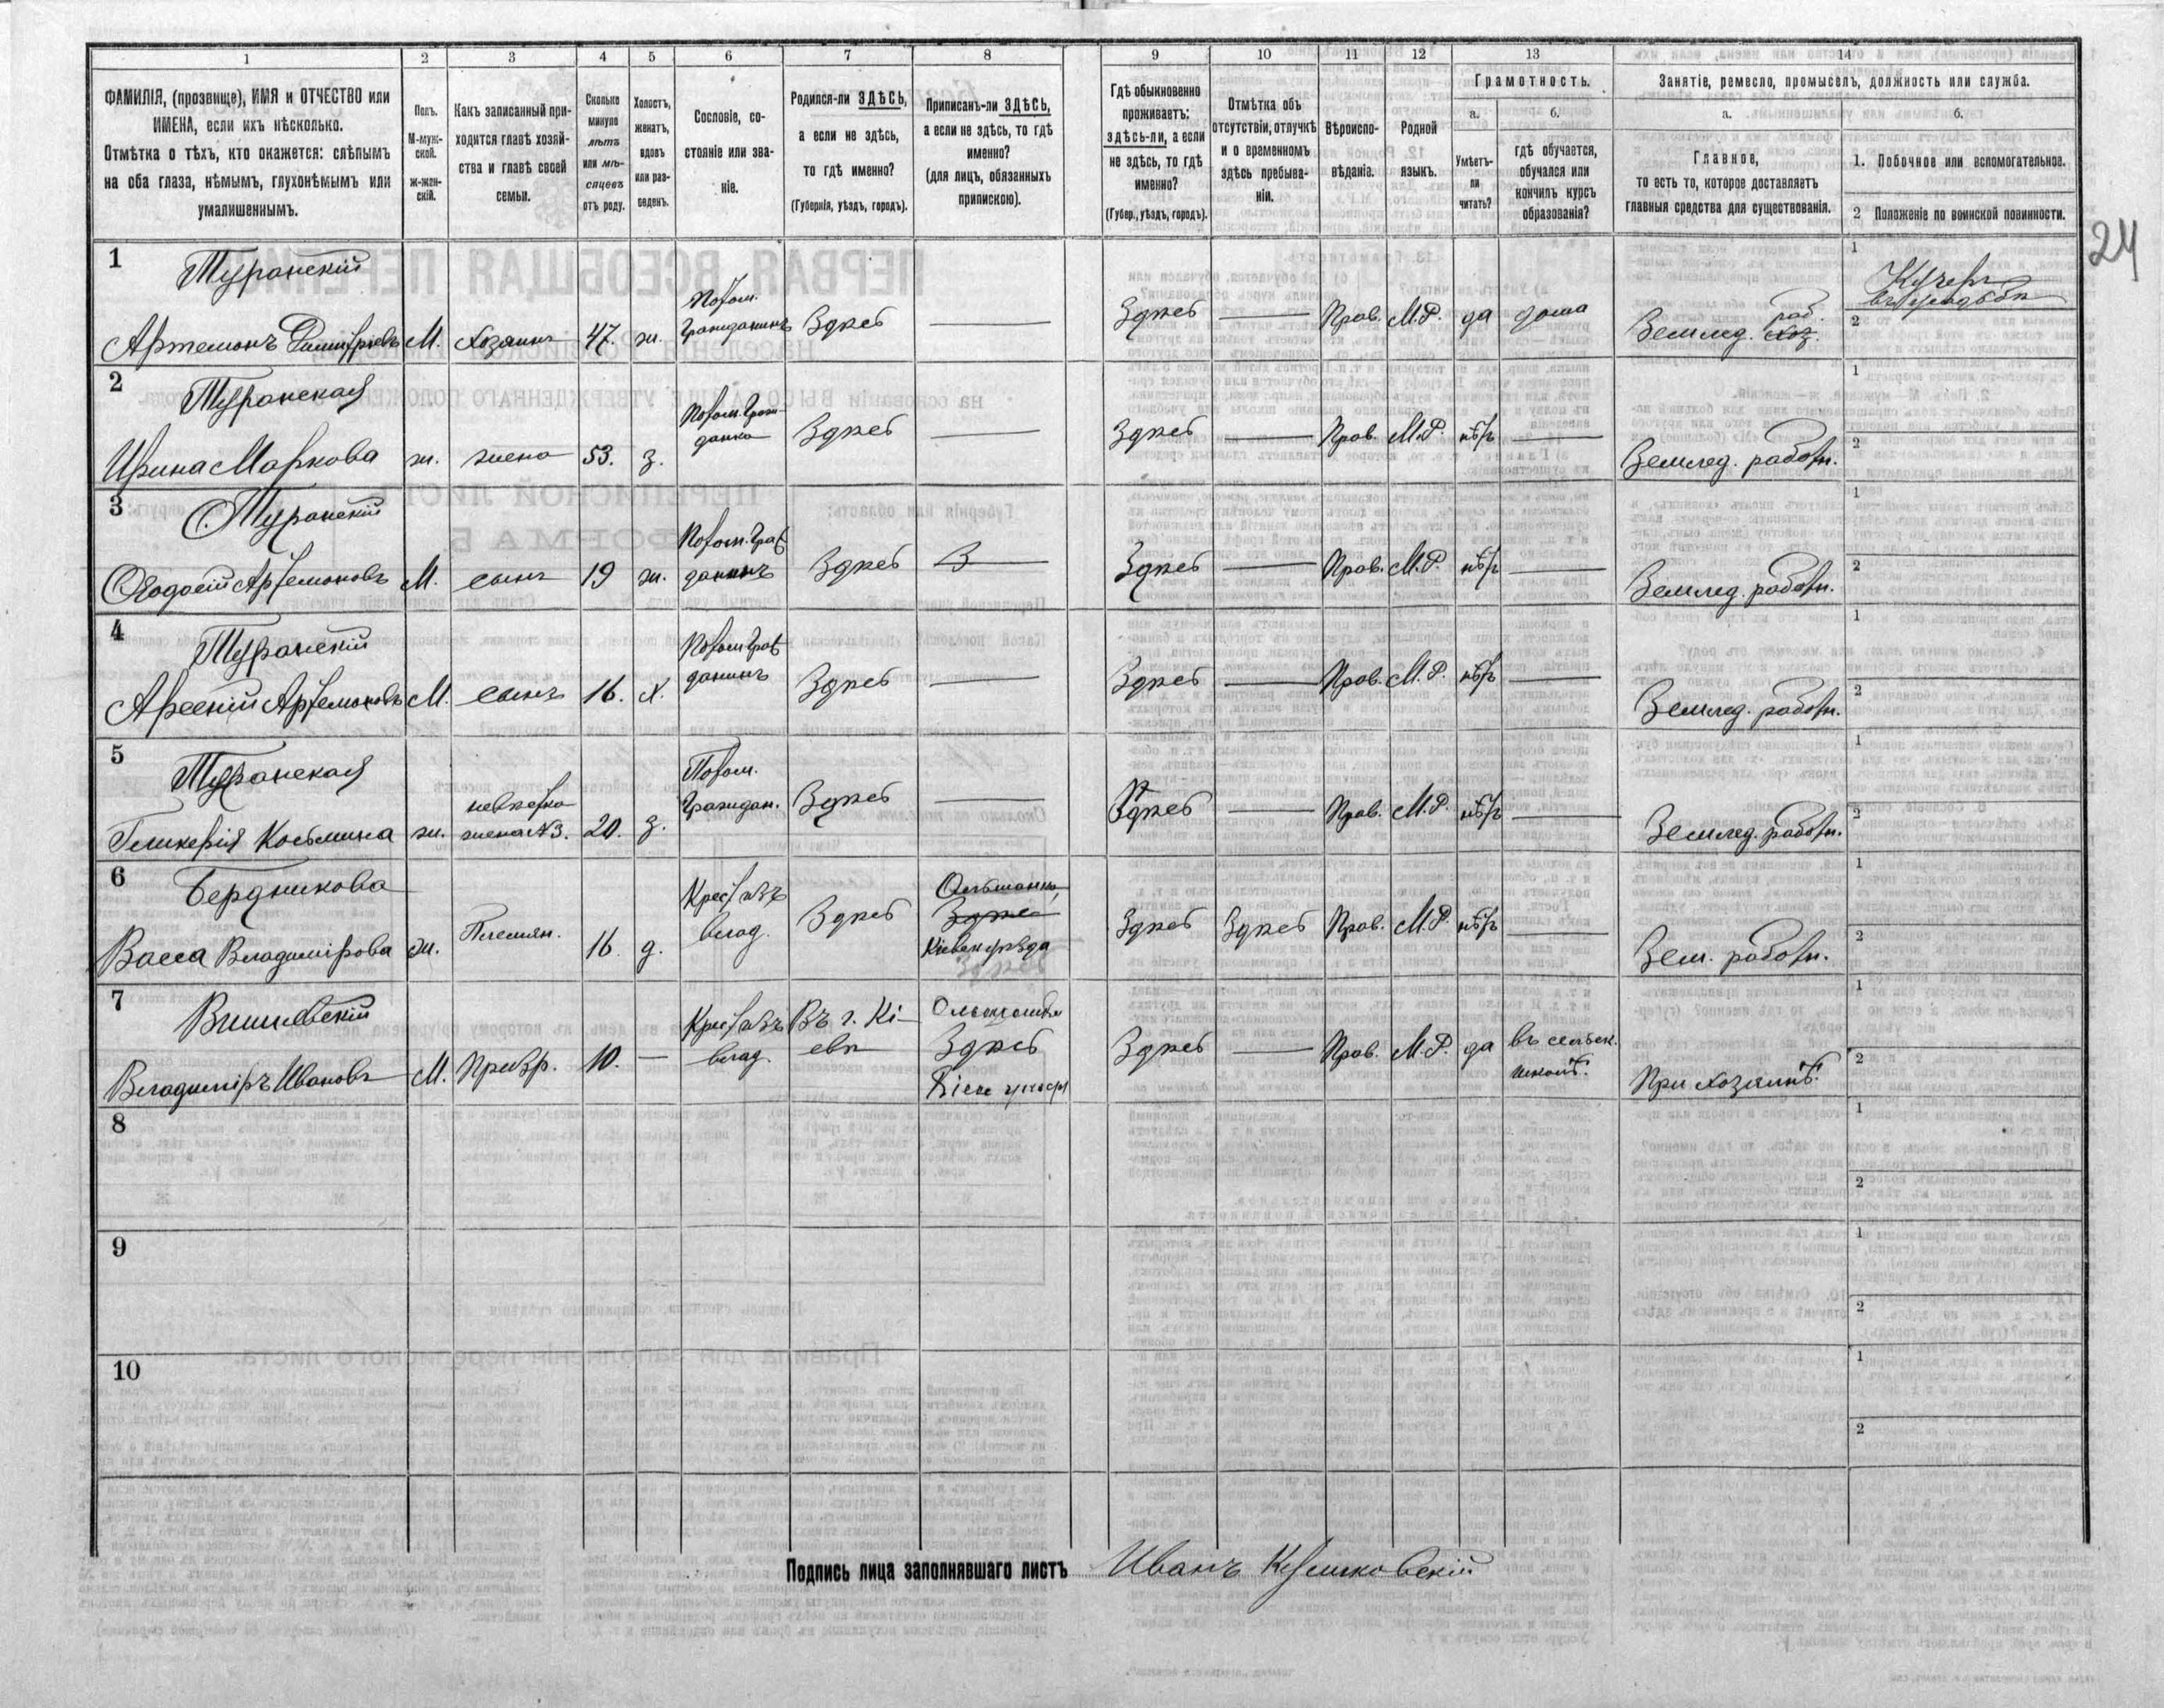 1 2 3 4 5 6 7 8 9 10 11 12 13 14
ФАМИЛІЯ, (прозвище), ИМЯ и ОТЧЕСТВО или
ИМЕНА, если ихъ нѣсколько.
Отмѣтка о тѣхъ, кто окажется: слѣпымъ
на оба глаза, нѣмымъ, глухонѣмымъ или
умалишеннымъ.
Полъ.
М-муж-
ской.
ж-жен-
скій.
Какъ записанный при-
ходится главѣ хозяй-
ства и главѣ своей
семьи.
Сколько
минуло
лѣтъ
или мѣ-
сяцевъ
отъ роду.
Холостъ,
женатъ,
вдовъ
или раз-
веденъ.
Сословіе, со-
стояніе или зва-
ніе.
Родился-ли ЗДѢСЬ,
а если не здѣсь,
то гдѣ именно?
(Губернія, уѣздъ, городъ).
Приписанъ-ли ЗДѢСЬ,
а если не здѣсь, то гдѣ
именно?
(для лицъ, обязанныхъ
припискою).
Гдѣ обыкновенно
проживаетъ:
здѣсь-ли, а если
не здѣсь, то гдѣ
именно?
(Губер., уѣздъ, городъ).
Отмѣтка объ
отсутствіи, отлучкѣ
и о временномъ
здѣсь пребыва-
ніи.
Вѣроиспо-
вѣданіе.
Родной
языкъ.
Грамотность.
а.
Умѣетъ-
ли
читать?
б.
гдѣ обучается,
обучался или
кончилъ курсъ
образованія?
Занятіе, ремесло, промыселъ, должность или служба.
а.
Главное,
то есть то, которое доставляетъ
главныя средства для существованія.
б.
1. Побочное или вспомогательное.
2 Положеніе по воинской повинности.
24
1
Туранскій
Артемонъ Димитріевъ М. хозяинъ 47. ж. Потом. Гражданинъ Здѣсь — Здѣсь — Прав. М.Р. да дома Землед. раб. хоз.
1 Кучеръ
въ усадьбѣ
2
2
Туранская
Ирина Маркова ж. жена 53. з. Потом. Граж-
данка Здѣсь — Здѣсь — Прав. М.Р. нѣтъ — Землед. работн.
1
2
3
Туранскій
Ѳеодосій Артемоновъ М. сынъ 19 ж. Потом. Граж
данинъ Здѣсь — Здѣсь — Прав. М.Р. нѣтъ — Землед. работн.
1
2
4
Туранскій
Арсеній Артемоновъ М. сынъ 16. х. Потом. Граж
данинъ Здѣсь — Здѣсь — Прав. М.Р. нѣтъ — Землед. работн.
1
2
5
Туранская
Гликерія Косьмина ж. невѣстка
жена №3. 20. з. Потом.
Граждан. Здѣсь — Здѣсь — Прав. М.Р. нѣтъ — Землед. работн.
1
2
6
Бердникова
Васса Владимірова ж. Племян. 16. д. Крест. изъ
влад. Здѣсь Ольшанка,
Здѣсь
Кіевск уѣзда
Здѣсь Здѣсь Прав. М.Р. нѣтъ — Зем. работн.
1
2
7
Вишневскій
Владиміръ Ивановъ М. Пріёвр. 10. — Крест. изъ
влад. Въ г. Кі-
евѣ Здѣсь
Здѣсь — Прав. М.Р. да въ сельск.
школѣ. При хозяинѣ.
1
2
8
1
2
9
1
2
10
1
2
Подпись лица заполнявшаго листъ Иванъ